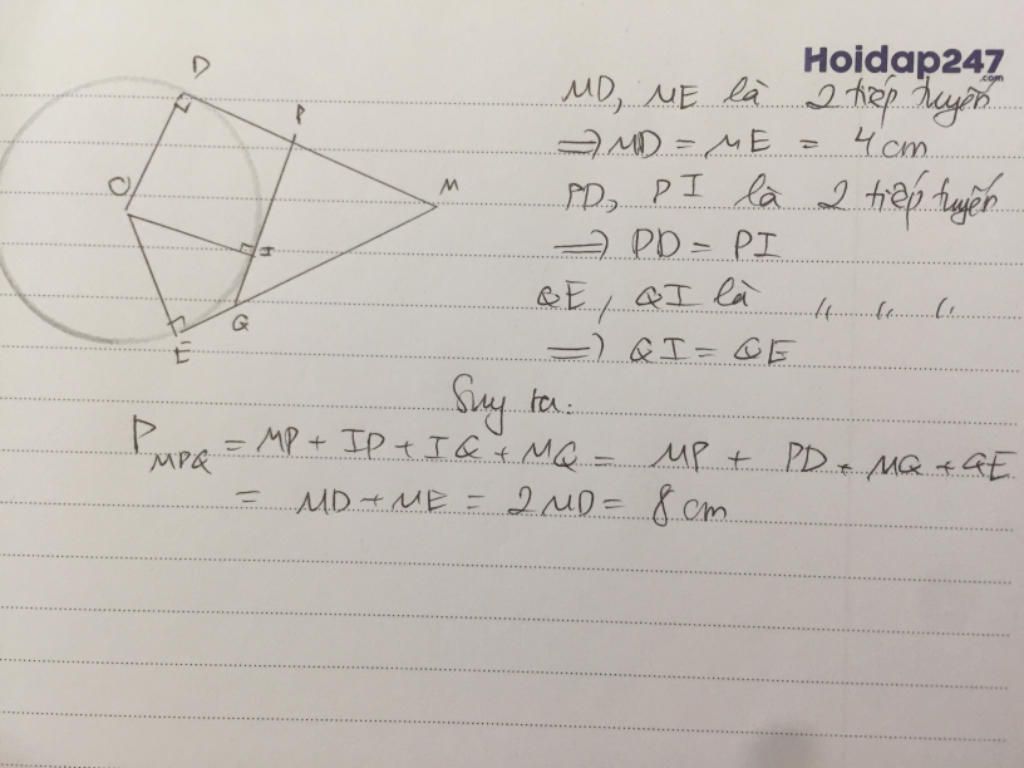 Hoidap247
.com
D
P
O
M
I
Q
E
MD, ME là 2 tiếp tuyến
=> MD = ME = 4 cm
PD, PI là 2 tiếp tuyến
=> PD = PI
QE, QI là " " "
=> QI = QE
Suy ra:
P MPQ = MP + IP + IQ + MQ = MP + PD + MQ + QE
= MD + ME = 2MD = 8 cm